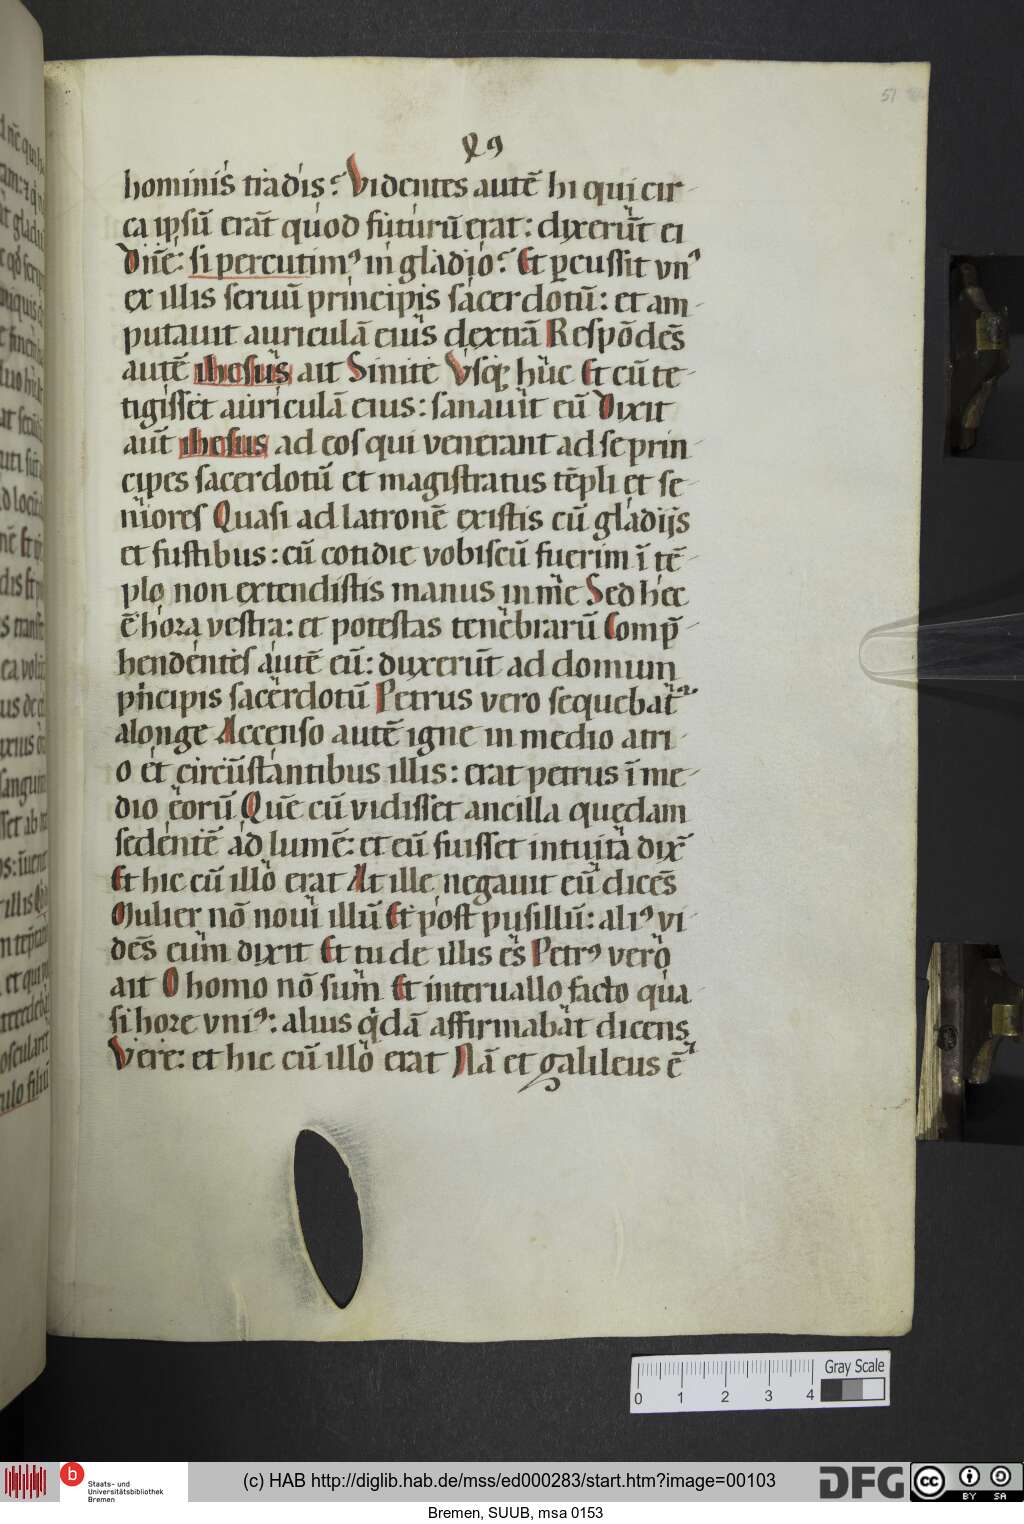 51
hominis tradis? Videntes autē hi qui cir-
ca ipsū erāt quod futurū erat: dixerūt ei
Dn̄e: si percutimꝰ in gladio? Et ꝑcussit vnꝰ
ex illis seruū principis sacerdotū: et am-
putauit auriculā eius dextrā Respōdēs
autē ihesus ait Sinite Vsqꝫ hūc Et cū te-
tigisset auriculā eius: sanauit eū Dixit
aūt ihesus ad eos qui venerant ad se prin-
cipes sacerdotū et magistratus tēpli et se-
niores Quasi ad latronē existis cū gladijs
et fustibus: cū cotidie vobiscū fuerim ī tē-
plo non extendistis manus in me Sed hec
ē hora vestra: et potestas tenebrarū Comp̄-
hendentes autē eū: duxerūt ad domum
pͥncipis sacerdotū Petrus vero sequebat᷑
alonge Accenso autē igne in medio atri-
o et circūstantibus illis: erat petrus ī me-
dio eorū Quē cū vidisset ancilla quedam
sedentē ad lumē: et eū fuisset intuita dix̄
Et hic cū illo erat At ille negauit eū dicēs
Mulier nō noui illū Et post pusillū: aliꝰ vi-
dēs eum dixit Et tu de illis es Petrꝰ vero
ait O homo nō sum Et interuallo facto qua-
si hore vniꝰ: alius qͥdā affirmabat dicens
Vere: et hic cū illo erat Nā et galileus ē
Gray Scale
0 1 2 3 4
b
Staats- und
Universitätsbibliothek
Bremen
(c) HAB http://diglib.hab.de/mss/ed000283/start.htm?image=00103
DFG
cc
BY SA
Bremen, SUUB, msa 0153